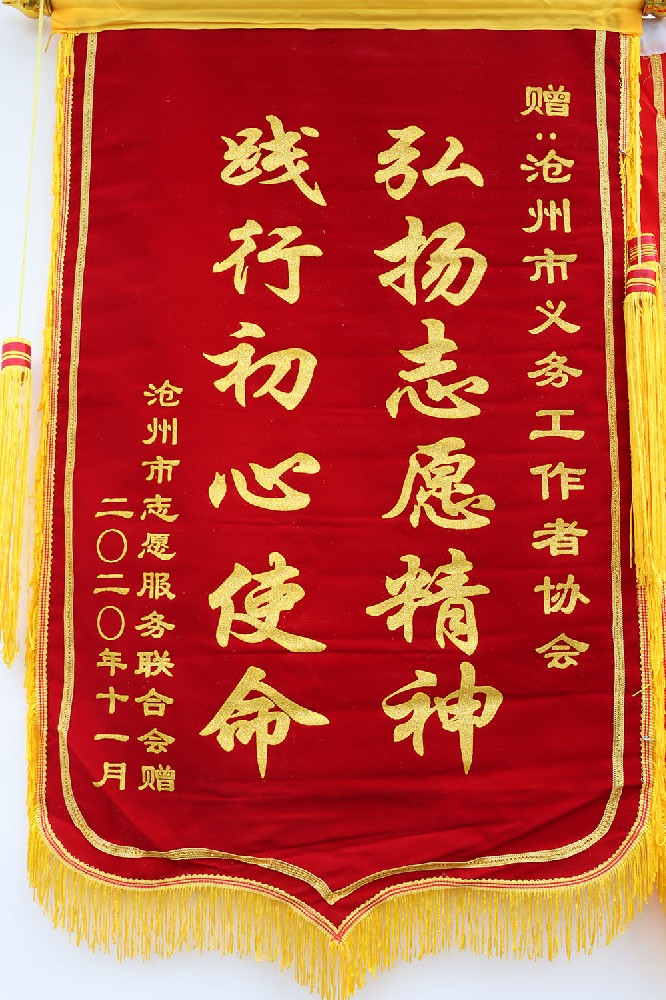 赠:沧州市义务工作者协会
弘扬志愿精神
践行初心使命
沧州市志愿服务联合会赠
二〇二〇年十一月